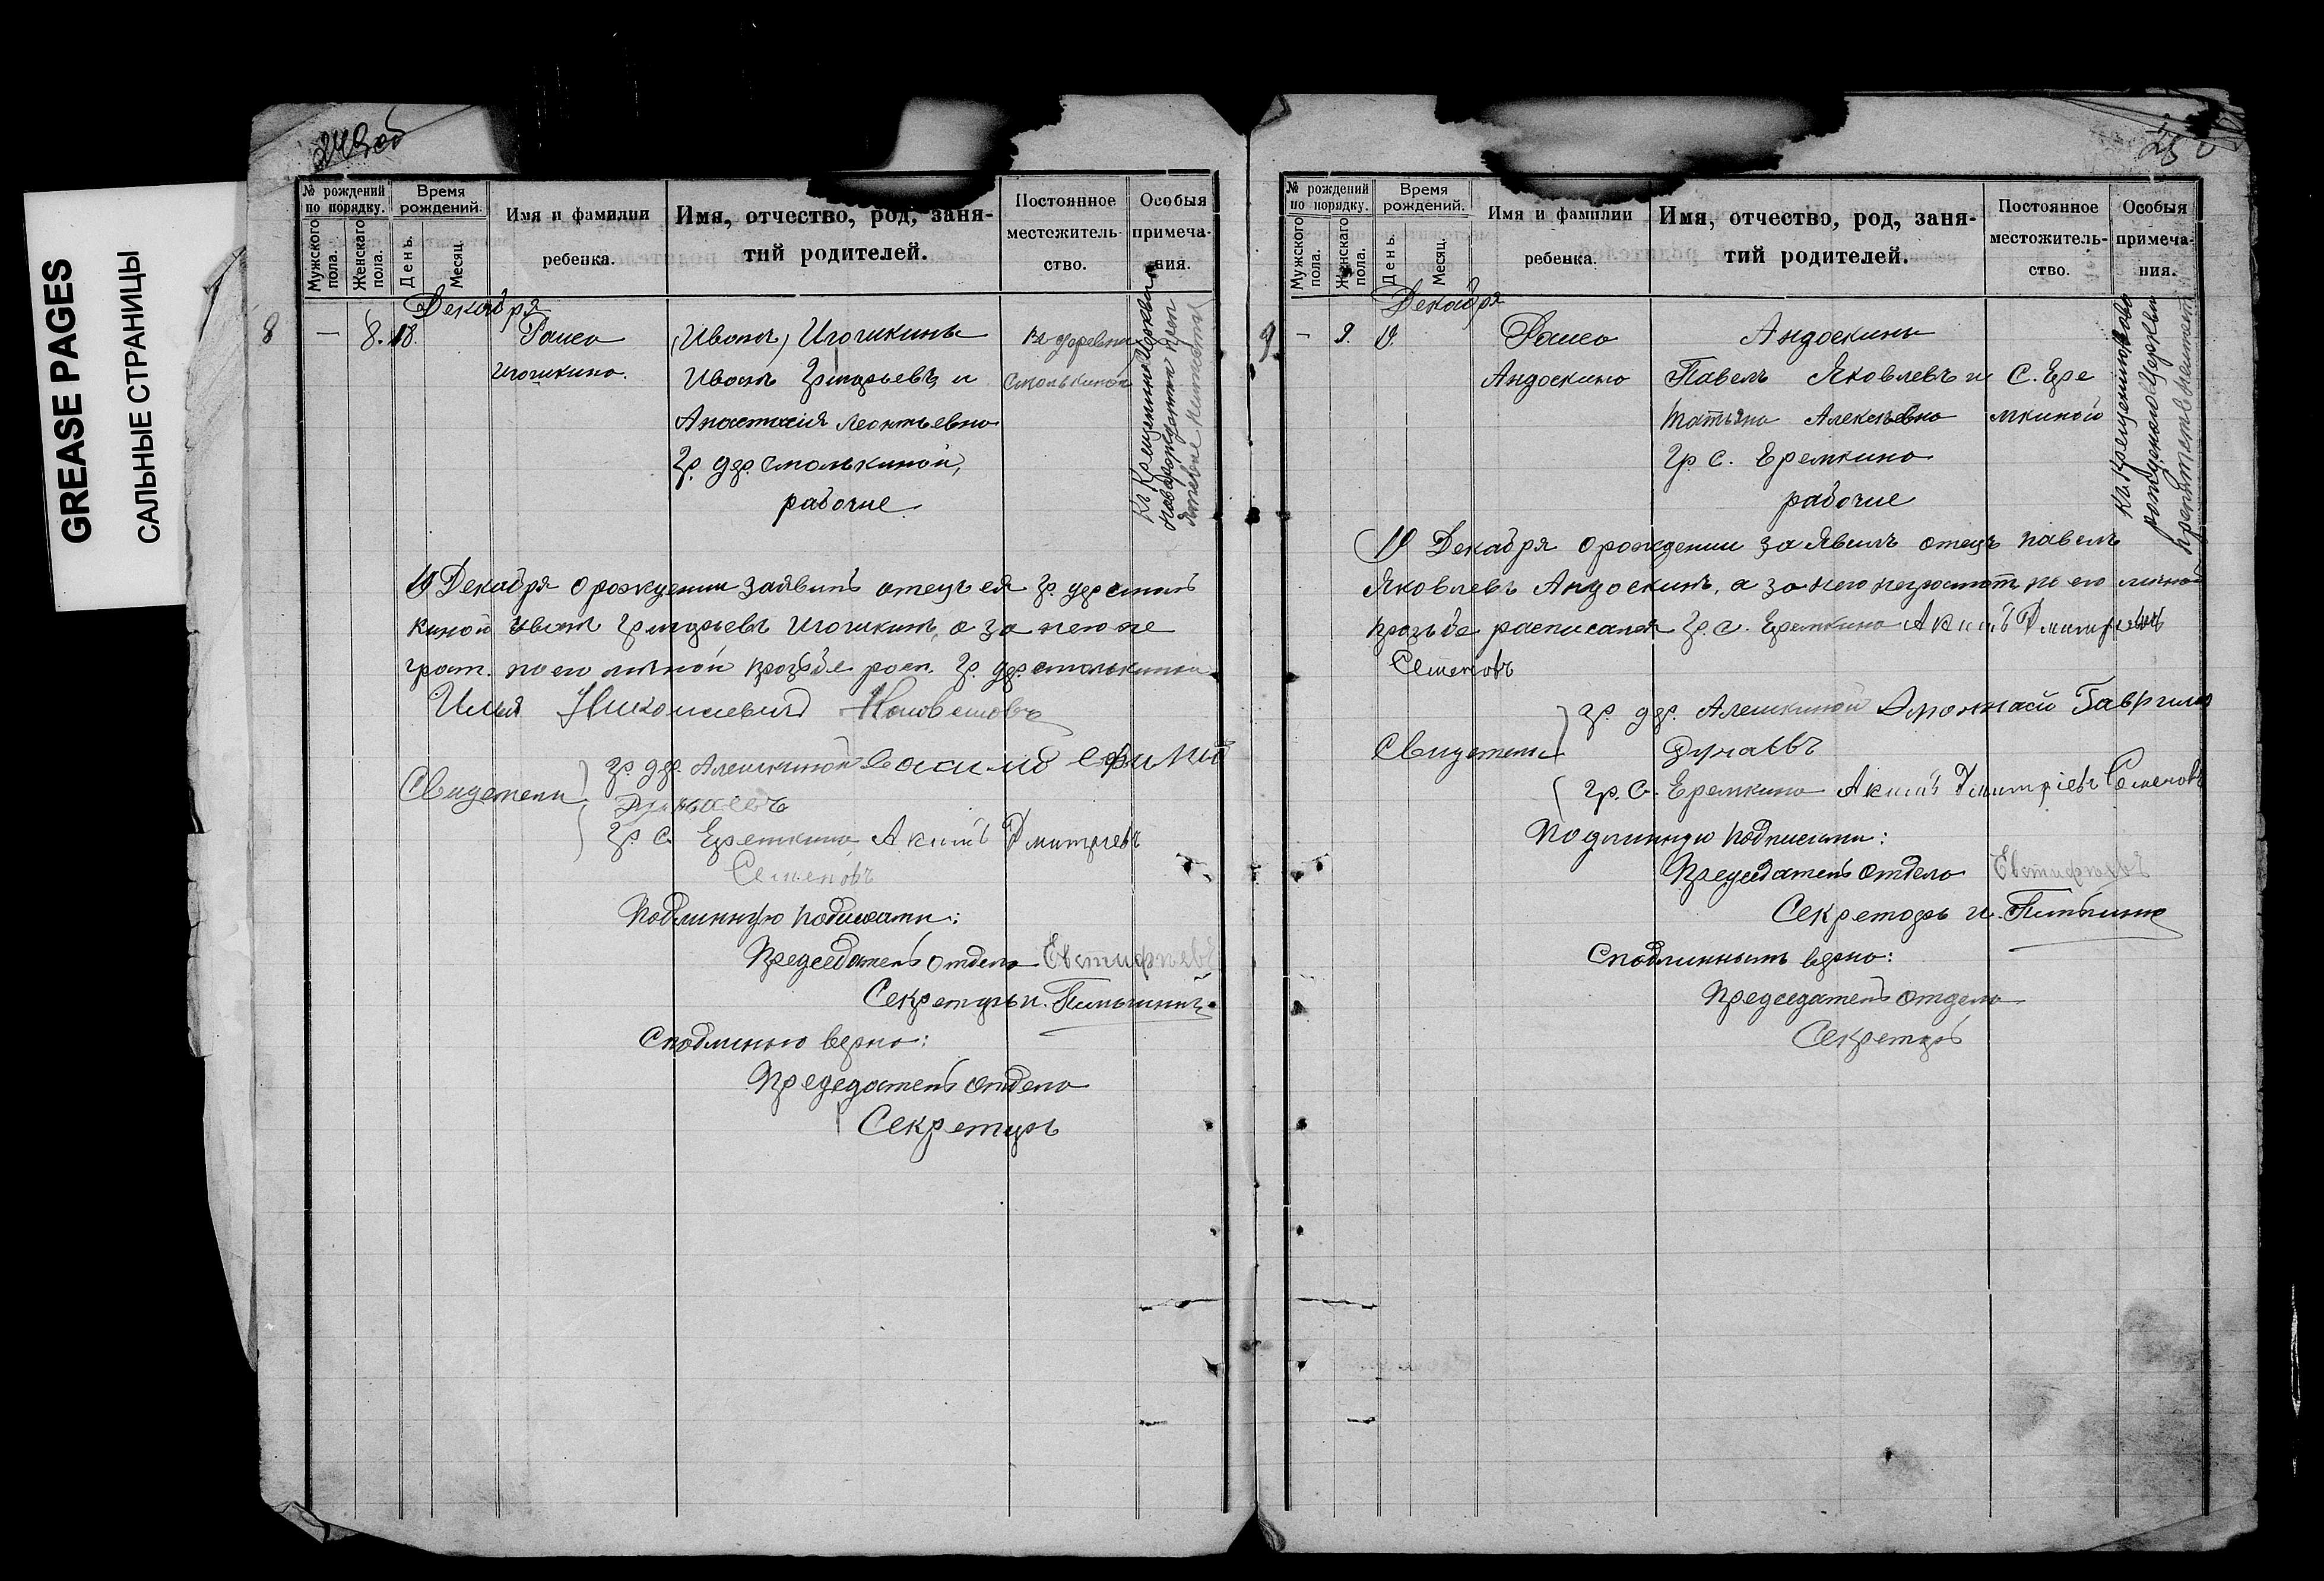 GREASE PAGES
САЛЬНЫЕ СТРАНИЦЫ
249об
№ рождений по порядку.
Мужского пола.
Женскаго пола.
Время рождений.
День.
Месяц.
Имя и фамилии ребенка.
Имя, отчество, род, заня-
тий родителей.
Постоянное
местожитель-
ство.
Особыя
примеча-
ния.
Декабря
8 — 8. 18. Раиса
Игошкина.
(Иванъ) Игошкины
Иванъ Дмитрьевъ и
Анастасія Леонтьевна
гр. дер. Смолькиной,
рабочие
въ деревни
Смолькиной
19 Декабря о рождении заявилъ отецъ ея гр. дер Смоль
киной Иванъ Дмитрьевъ Игошкинъ, а за него не
грам. по его личной прозьбе расп. гр. дер. Смолькиной
Илья Николаевич
Свидетели
гр. дер. Алешкиной Василий Ефимов
Дунаевъ
гр. с. Еремкина Акимъ Дмитриевъ
Семеновъ
Подлинную подписали:
Председатель отдела Евстифеевъ
Секретарь и.
С подлинною верно:
Председатель отдела
Секретарь
№ рождений по порядку.
Мужского пола.
Женскаго пола.
Время рождений.
День.
Месяц.
Имя и фамилии ребенка.
Имя, отчество, род, заня-
тий родителей.
Постоянное
местожитель-
ство.
Особыя
примеча-
ния.
Декабря
9 — 9. 19. Раиса
Андоскина
Андоскины
Павелъ Яковлевъ и
Татьяна Алексѣевна
гр с. Еремкино
рабочие
С. Ере
мкиной
19 Декабря о рождении заявилъ отецъ Павелъ
Яковлевъ Андоскинъ, а за него неграмот. по его личной
прозьбе расписался гр. с. Еремкина Акимъ Дмитриевъ
Семеновъ
Свидетели
гр. дер. Алешкиной Гаврилов
Дунаевъ
гр. с. Еремкина Акимъ Дмитріевъ Семеновъ
Подлинную подписали:
Председатель отдела Евстифеевъ
Секретарь и.
С подлинностью верно:
Председатель отдела
Секретарь